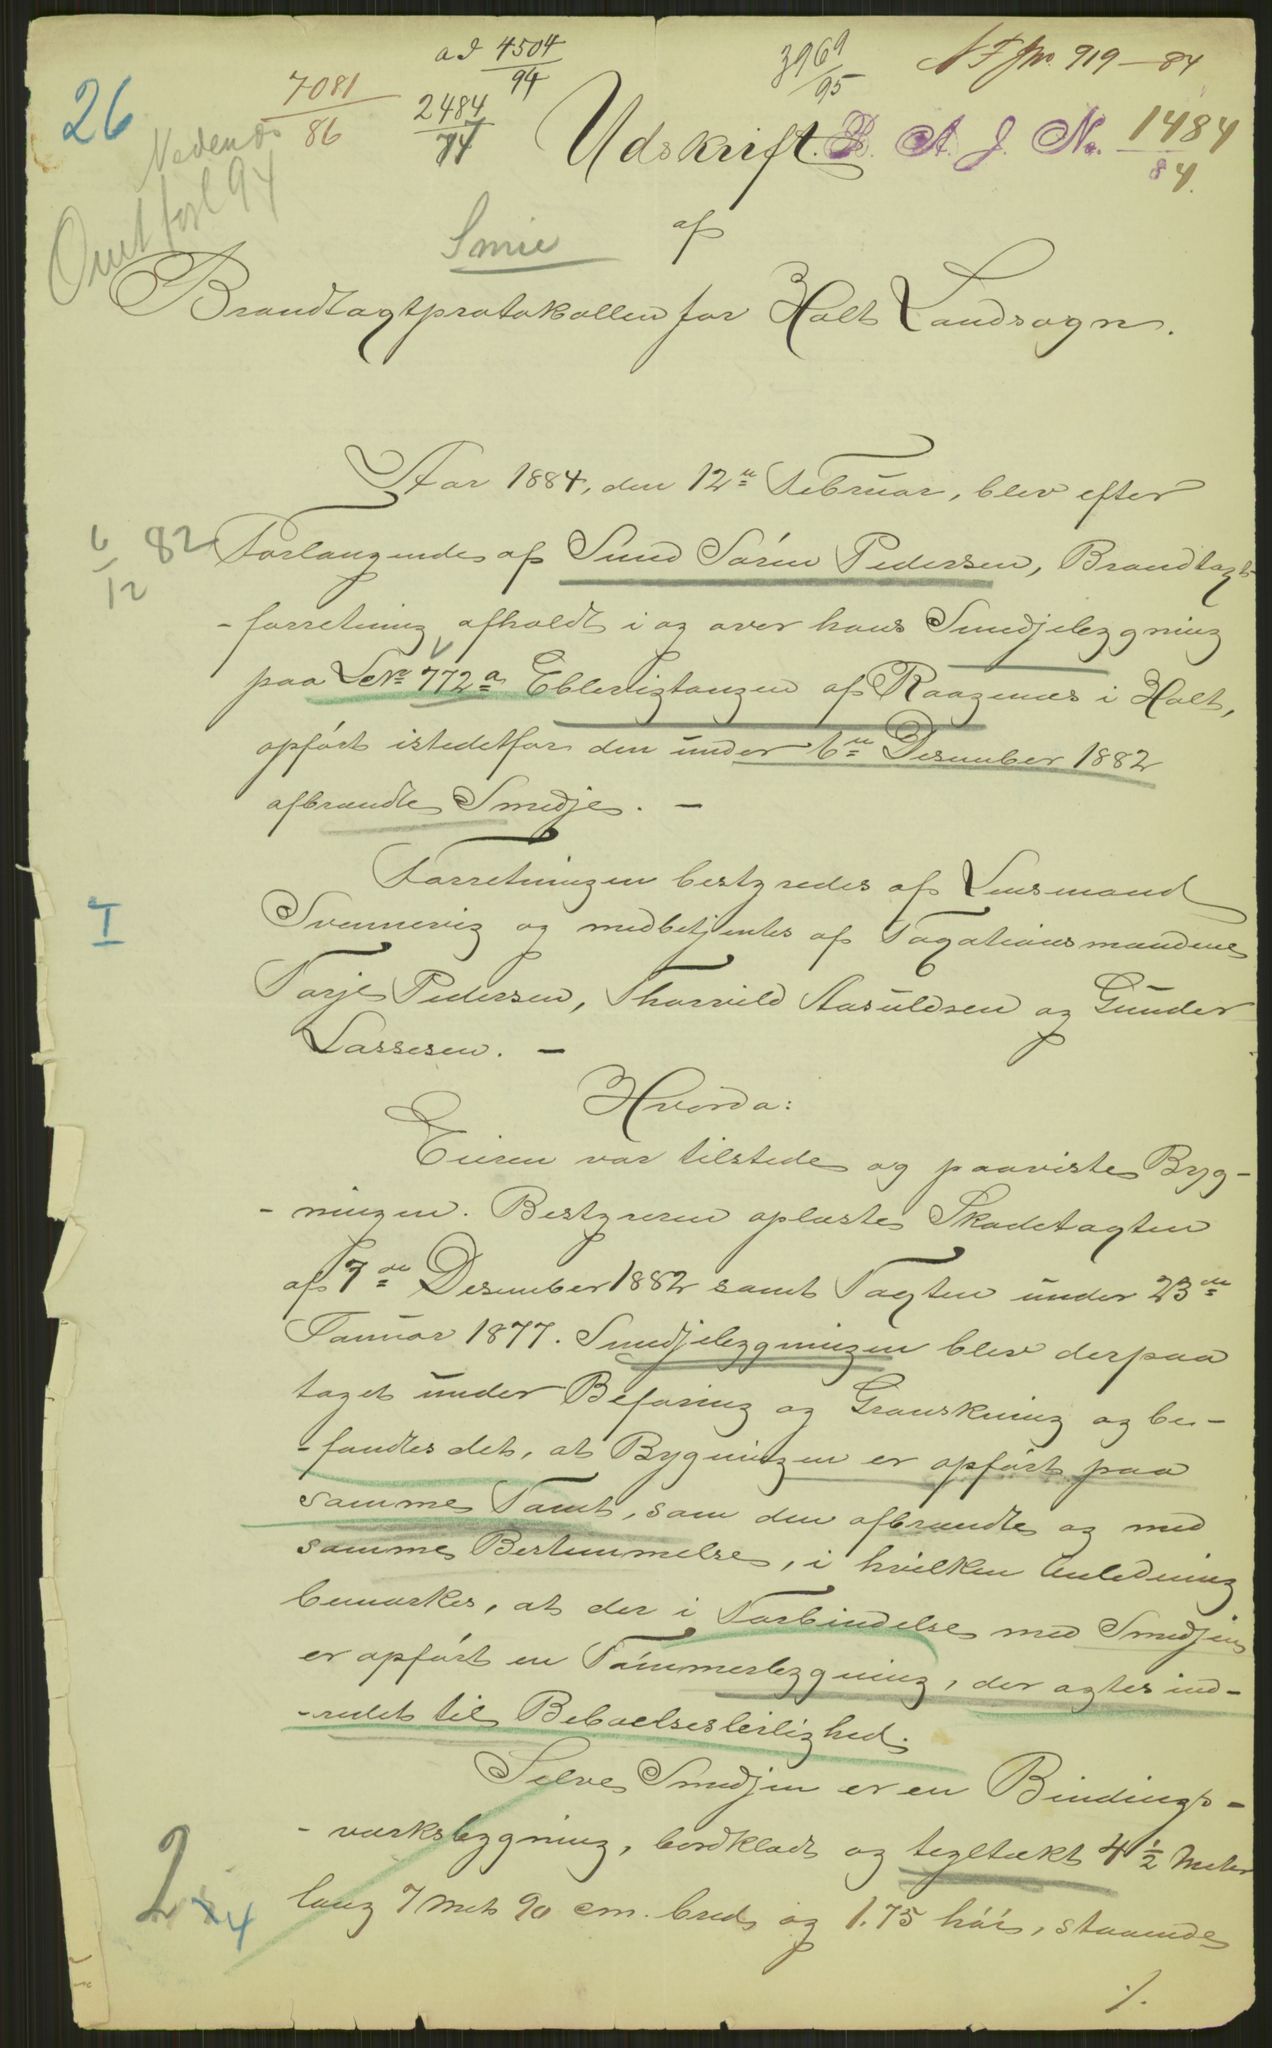 26
7081
86
ad 4504
94
2484
84
3969
95
N F Jnr. 919 - 84
Nedenæs
Omtfosl 94
Udskrift. B. A. J. No. 1484
84.
Smie
af
Brandtaxtprotokollen for Holt Landsogn.
Aar 1884, den 12te Februar, blev efter
6
12 82
Forlangende af Smed Sören Pedersen, Brandtaxt-
-forretning afholdt i og over hans Smedjebygning
paa LNo 772a Eblevigtangen af Raagenæs i Holt,
opført istedetfor den under 6te Desember 1882
afbrændte Smedje. -
Forretningen bestyredes af Lensmand
I
Svennevig og medbetjentes af Taxationsmændene
Tarje Pedersen, Thorvild Aasuldsen og Gunder
Lassesen. -
Hvorda:
Eieren var tilstede og paaviste Byg-
-ningen. Bestyreren oplæste Skadetaxten
af 7de Desember 1882 samt Taxten under 23de
Januar 1877. Smedjebygningen blev derpaa
taget under Befaring og Granskning og be-
-fandtes det, at Bygningen er opført paa
samme Tomt, som den afbrændte og med
samme Bestemmelse, i hvilken Anledning
bemærkes, at der i Forbindelse med Smedjen
er opført en Tömmerbygning, der agtes ind-
-redet til Beboelsesleilighed.
Selve Smedjen er en Bindings-
-værksbygning, bordklædt og tegltækt 4 1/2 Meter
2 x 4
lang 7 Met 90 cm. bred og 1.75 höi, staaende
./.